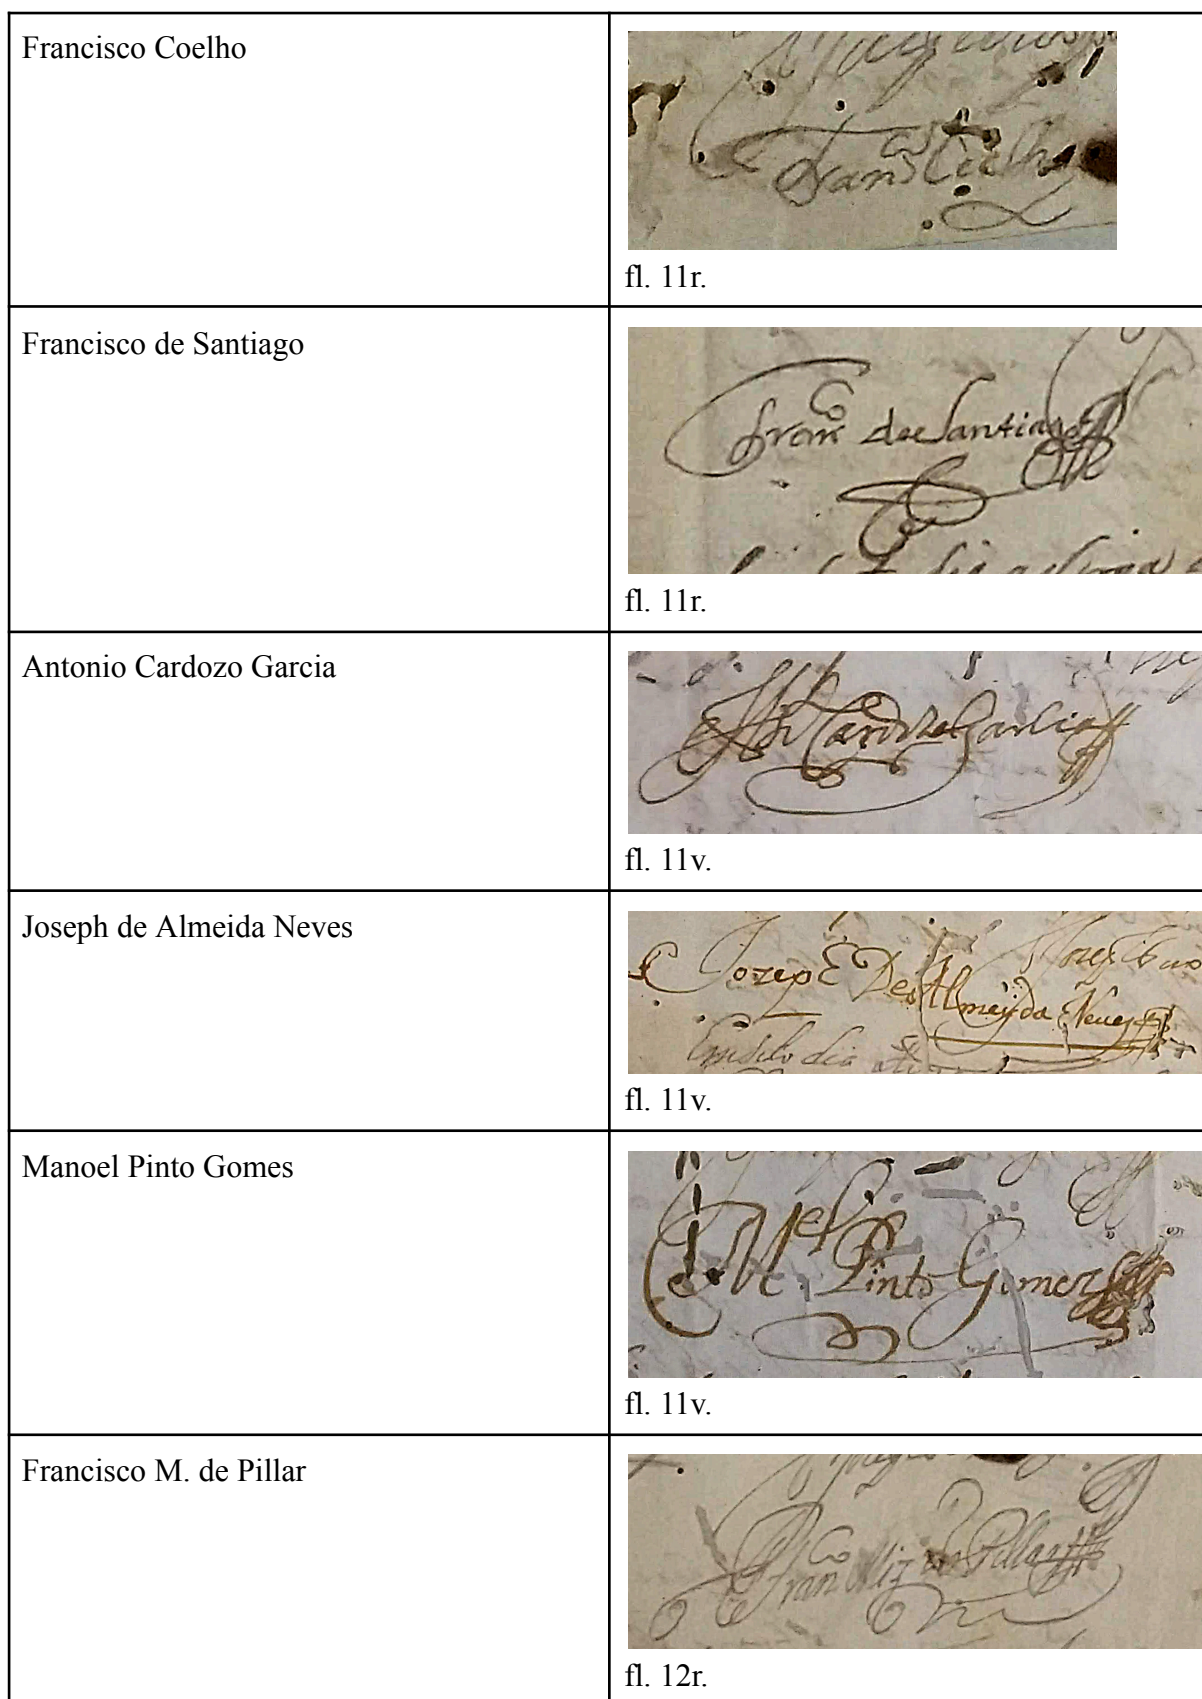 Francisco Coelho
Fran.co Coelho
fl. 11r.
Francisco de Santiago
fran.co de Santiago
fl. 11r.
Antonio Cardozo Garcia
Cardozo Garcia
fl. 11v.
Joseph de Almeida Neves
Jozeph De Almeyda Neves
fl. 11v.
Manoel Pinto Gomes
M.el Pinto Gomez
fl. 11v.
Francisco M. de Pillar
Fran.co Miz de Pillar
fl. 12r.